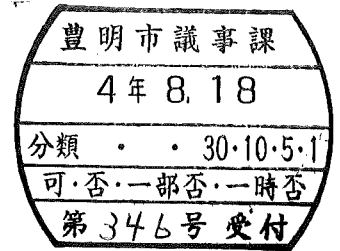 豊明市議事課
4年8.18
分類 ・ ・ 30・10・5・1
可・否・一部否・一時否
第346号 受付